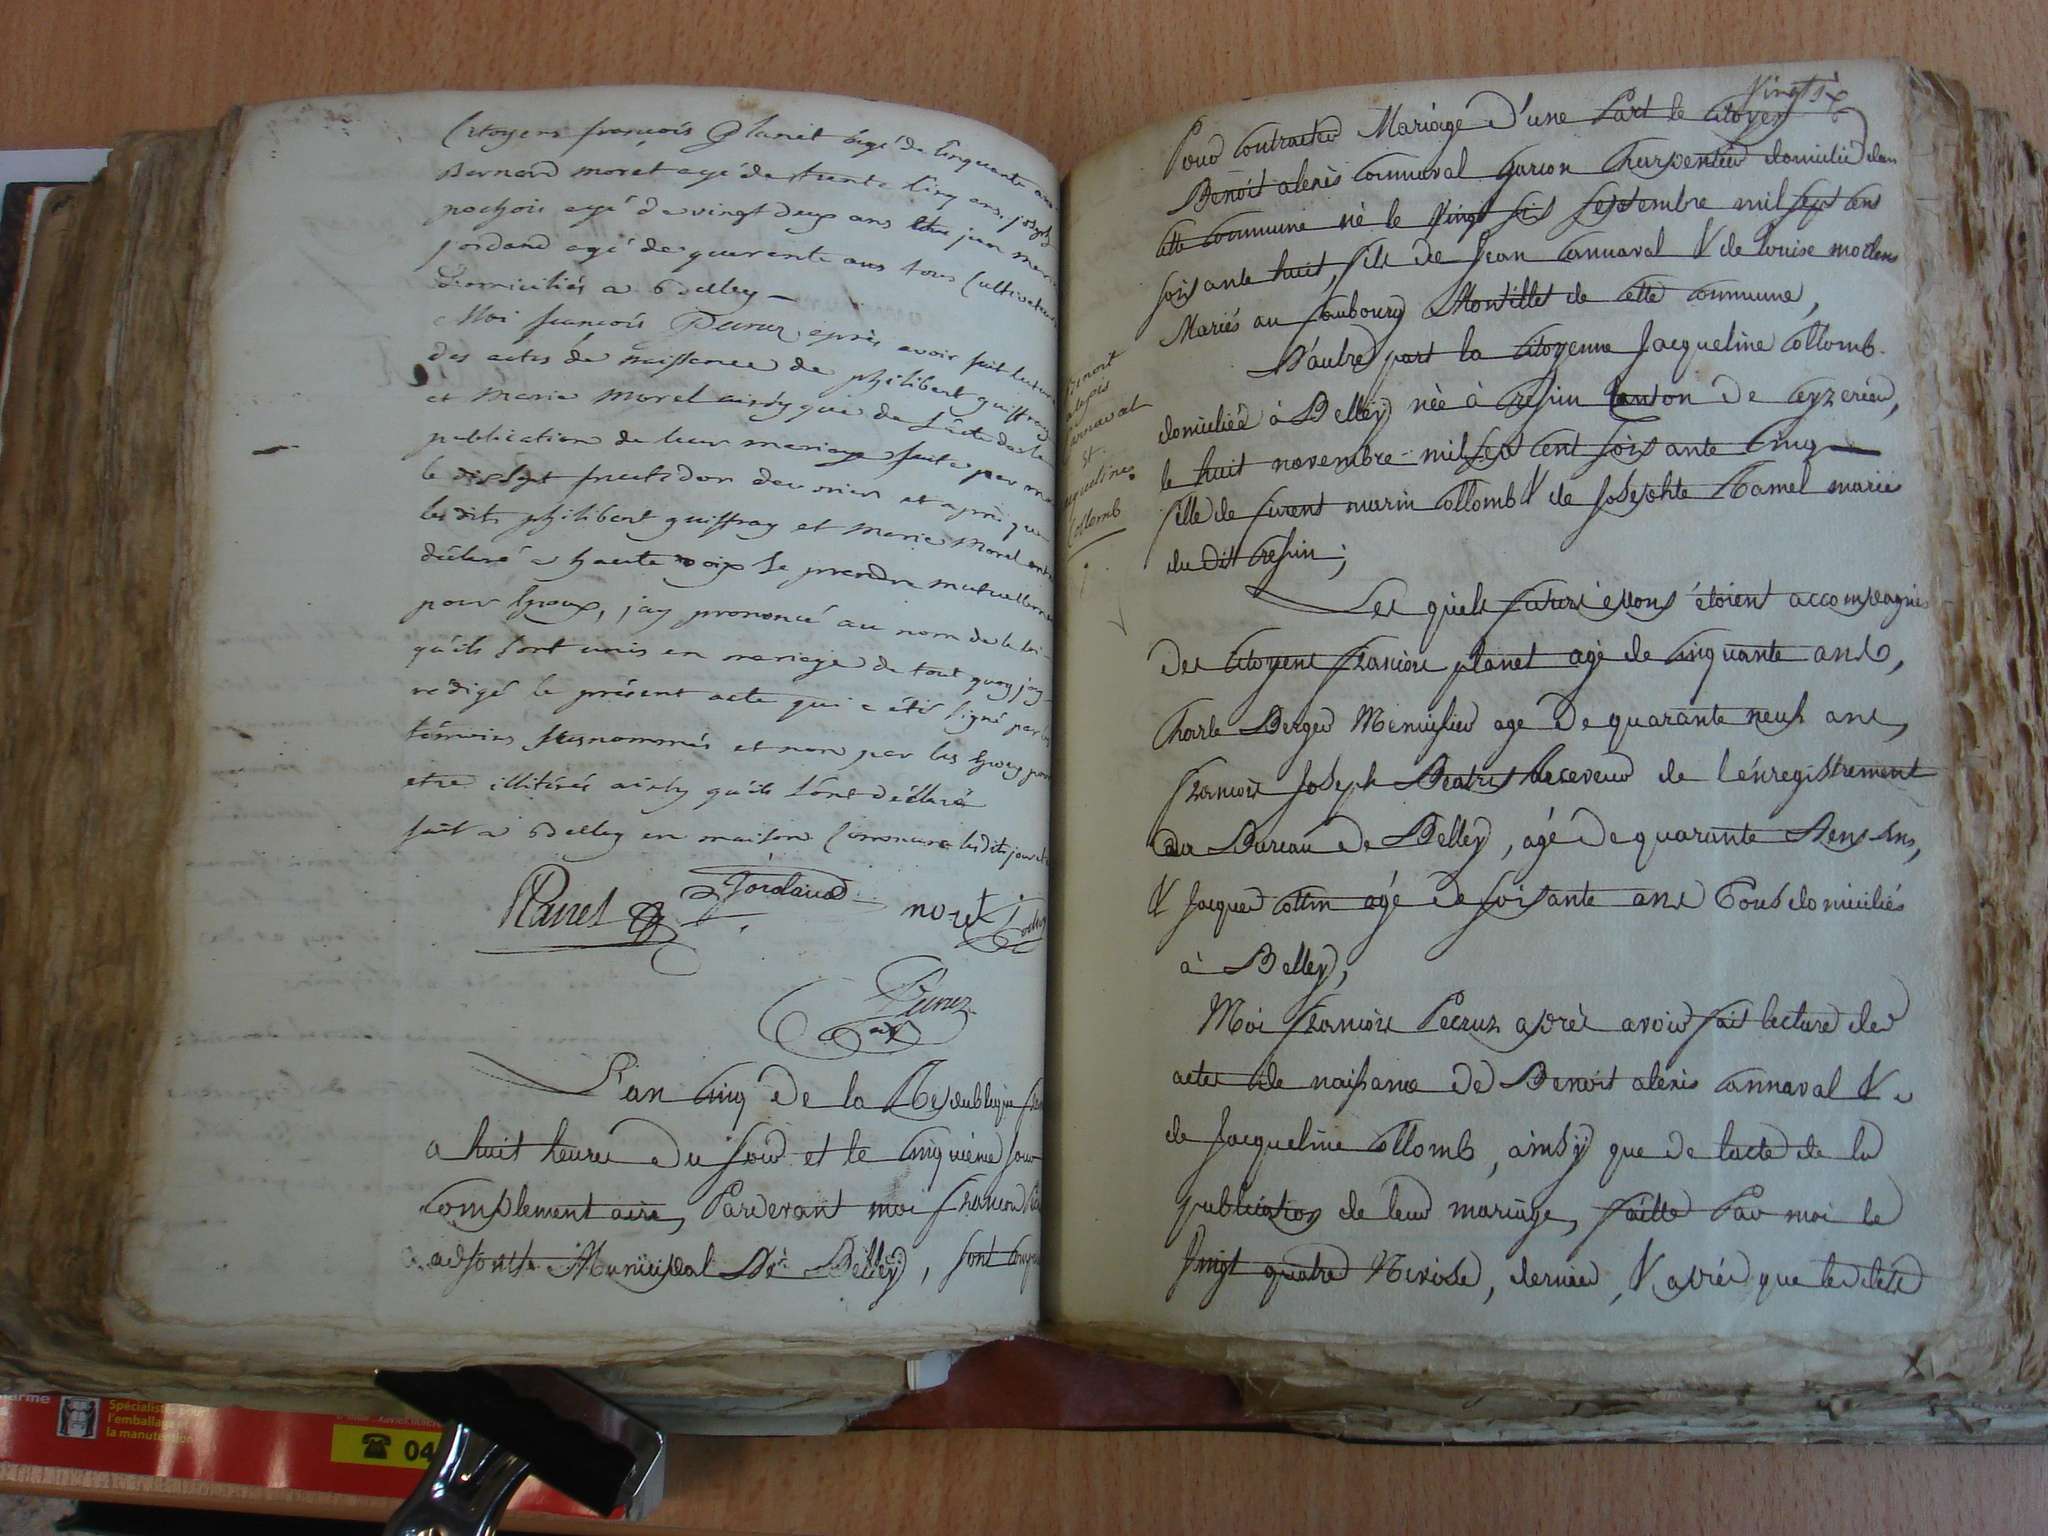 Citoyens françois Planet agé de Cinquante ans
Bernard moret agé de trente Cinq ans, joseph
pochois agé de vingt deux ans jean marie
jordand agé de quarente ans tous Cultivateurs
domiciliés a Belley
Moi françois Peruz après avoir fait lecture
des actes de naissance de philibert guiffray
et Marie Morel ainsy que de L'acte de la
publication de leur mariage faite par moi
le dix sept fructidor dernier et après que
les dits philibert guiffray et Marie Morel ont
déclaré a haute voix Se prendre mutuellement
pour Epoux, j'ay prononcé au nom de la loi
qu'ils sont unis en mariage de tout quoy j'ay
redigé le présent acte qui a été signé par les
témoins susnommés et non par les Epoux pour
etre illitérés ainsy qu'ils L'ont déclaré
fait a Belley en maison Commune les dits jour et
Planet Jordand moret
Peruz
L'an Cinq de la Republique
a huit heures du soir et le Cinquième jour
Complementaire, Pardevant moi francois
adjoint Municipal De Belley, sont
Vingt six
Pour Contracter Mariage d'une Part le Citoyen
Benoit alexis Cannaval garcon Charpentier domicilié dans
cette Commune né le Vingt six Septembre mil sept cens
soixante huit, fils de Jean Cannaval & de Louise modens
Mariés au faubourg Montillet de Cette Commune,
D'autre part la Citoyenne Jacqueline Collomb
domiciliée à Belley née à Cressin Canton de Ceyzerieu,
le huit novembre mil sept Cent soixante Cinq
fille de furent marin Collomb & de Josephte hamel mariés
du dit Cressin;
Benoit
alexis
Carnaval
et
jaqueline
Collomb
Les quels futurs époux étoient accompagnés
des Citoyens francois planet agé de Cinquante ans,
Charle Berger Menuisier age de quarante neuf ans,
francois Joseph Receveur de l'énregistrement
au Bureau de Belley, agé de quarante ans,
& Jacques Collin agé de soixante ans Tous domiciliés
à Belley,
Moi francois Peruz après avoir fait lecture des
actes de naissance de Benoit alexis Cannaval &
de Jacqueline Collomb, ainsy que de lacte de la
publication de leur mariage, faitte Par moi le
Vingt quatre Nivose, dernier, & après que les dits
Spécialiste pour
l'emballage
la manutention
04